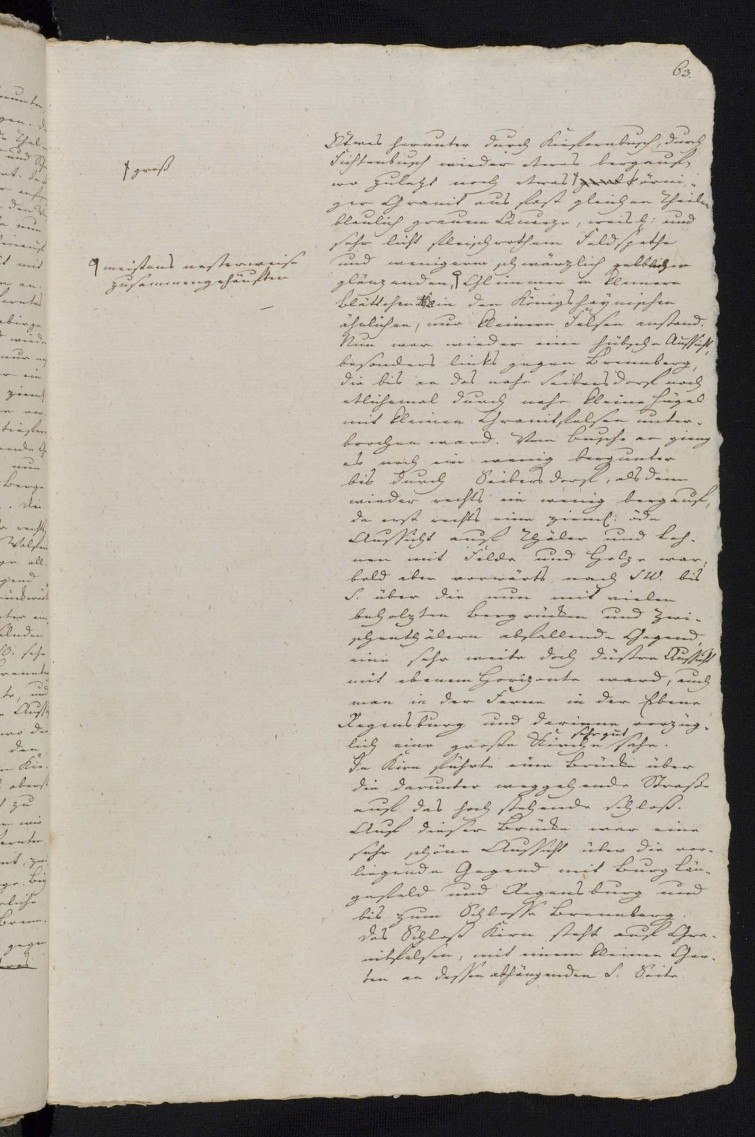 63.
groß
meistens nesterweise
zusammengehäuften
Etwas herunter durch Kiefernbusch, durch
Fichtenbusch wieder etwas bergauf,
wo zuletzt noch etwas körni-
ger Granit aus fast gleichen Theilen
blaulich grauem Quarze, weisl: und
sehr licht fleischrothem Feldspathe
und wenigerm schwärzlich gelblichen
glänzenden, Glimmer in kleinern
Blättchen in den Königshaynischen
ähnlichen, nur kleinern Felsen anstand.
Nun war wieder eine hübsche Aussicht,
besonders links gegen Brennberg,
die bis an das nahe Seibersdorf noch
etlichemal durch nahe kleine Hügel
mit kleinen Granitfelsen unter-
brochen ward. Vom Busche an ging
es noch ein wenig bergunter
bis durch Seibersdorf, alsdenn
wieder rechts ein wenig bergauf,
da erst rechts eine zieml: öde
Aussicht auf Thäler und Leh-
nen mit Felde und Holze war,
bald aber vorwärts nach SW. bis
S. über die nun mit vielen
beholzten Bergrücken und Zwi-
schenthälern abfallende Gegend
eine sehr weite doch düstre Aussicht
mit ebenem Horizonte ward, auch
man in der Ferne in der Ebene
Regensburg und darinne vorzüg-
lich eine große Kirche sehr gut sahe.
In Kirn führte eine Brücke über
die darunter weggehende Straße
auf das hoch stehende Schloß.
Auf dieser Brücke war eine
sehr schöne Aussicht über die vor-
liegende Gegend mit Burg Län-
genfeld und Regensburg und
bis zum Schlosse Brennberg.
Das Schloß Kirn steht auf Gra-
nitfelsen, mit einem kleinen Gar-
ten an dessen abhängenden S. Seite.